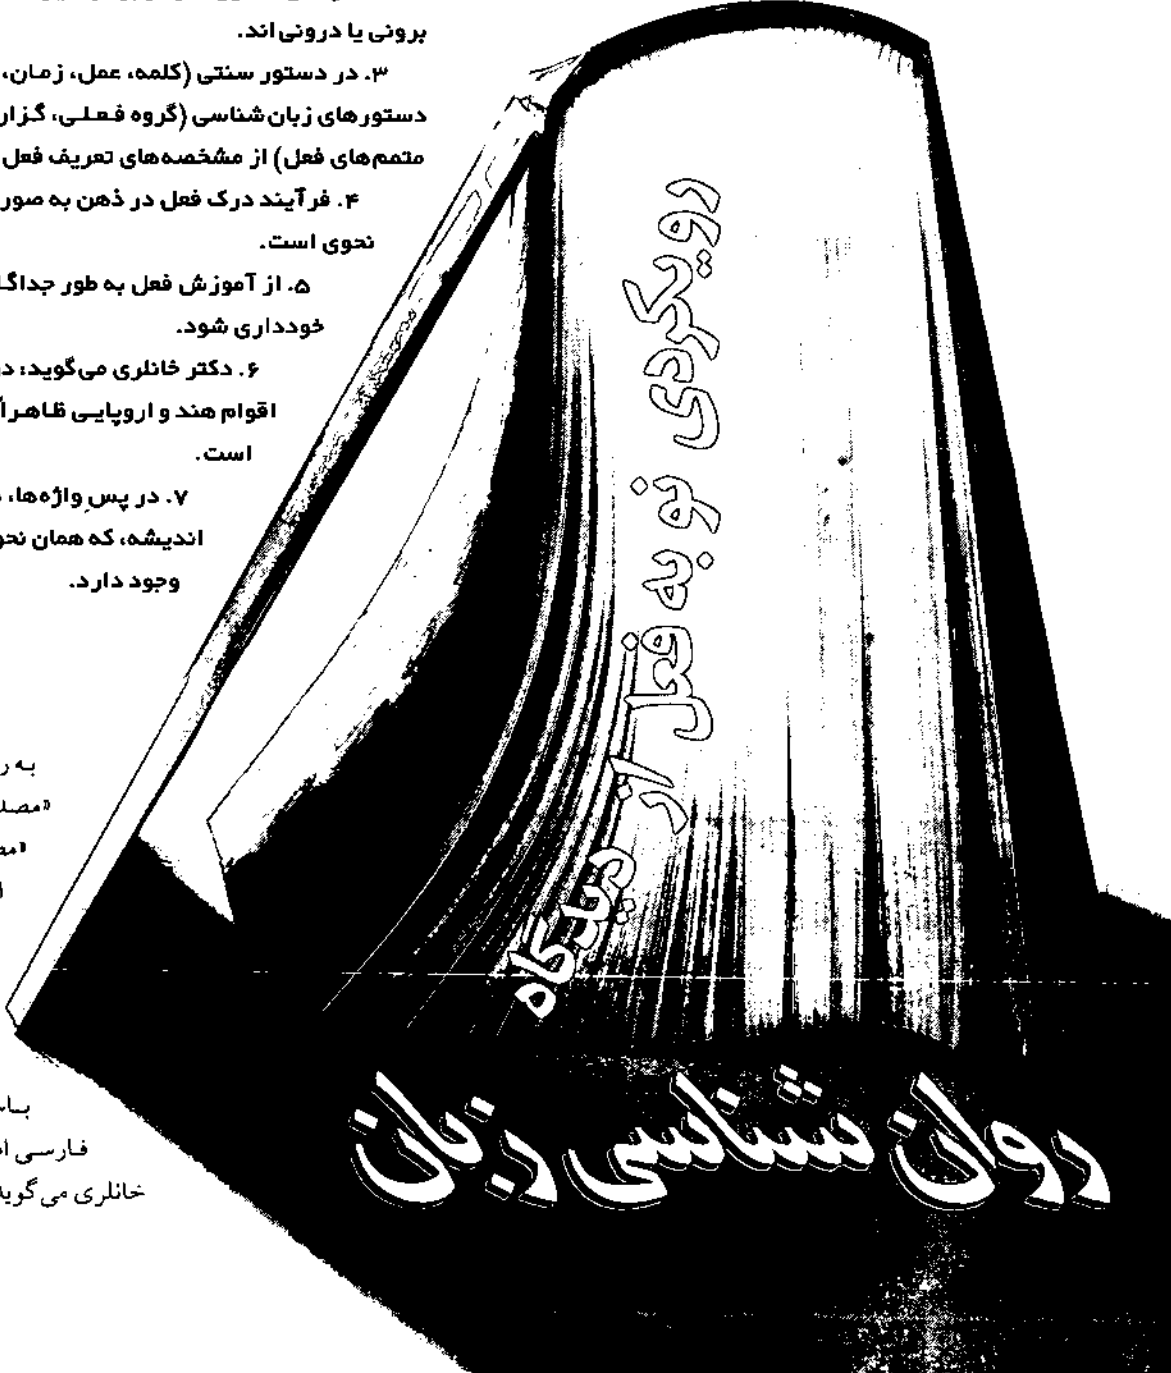 برونی یا درونی اند.
۳. در دستور سنتی (کلمه، عمل، زمان،
دستورهای زبان شناسی (گروه فعلی، گزار
متمم‌های فعل) از مشخصه‌های تعریف فعل
۴. فرآیند درک فعل در ذهن به صور
نحوی است.
۵. از آموزش فعل به طور جداگـ
خودداری شود.
۶. دکتر خانلری می‌گوید: در
اقوام هند و اروپایی ظاهراً
است.
۷. در پسِ واژه‌ها،
اندیشه، که همان نحو
وجود دارد.
رویکردی نو به فعل از دیدگاه
روان شناسی زبان
به ر
«مصد
«مص
فارسی
خانلری می‌گوید